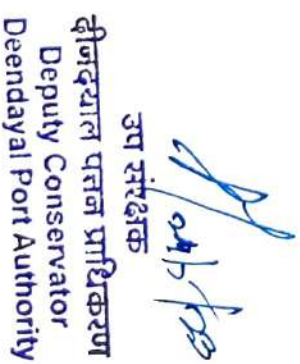 उप संरक्षक
दीनदयाल पत्तन प्राधिकरण
Deputy Conservator
Deendayal Port Authority